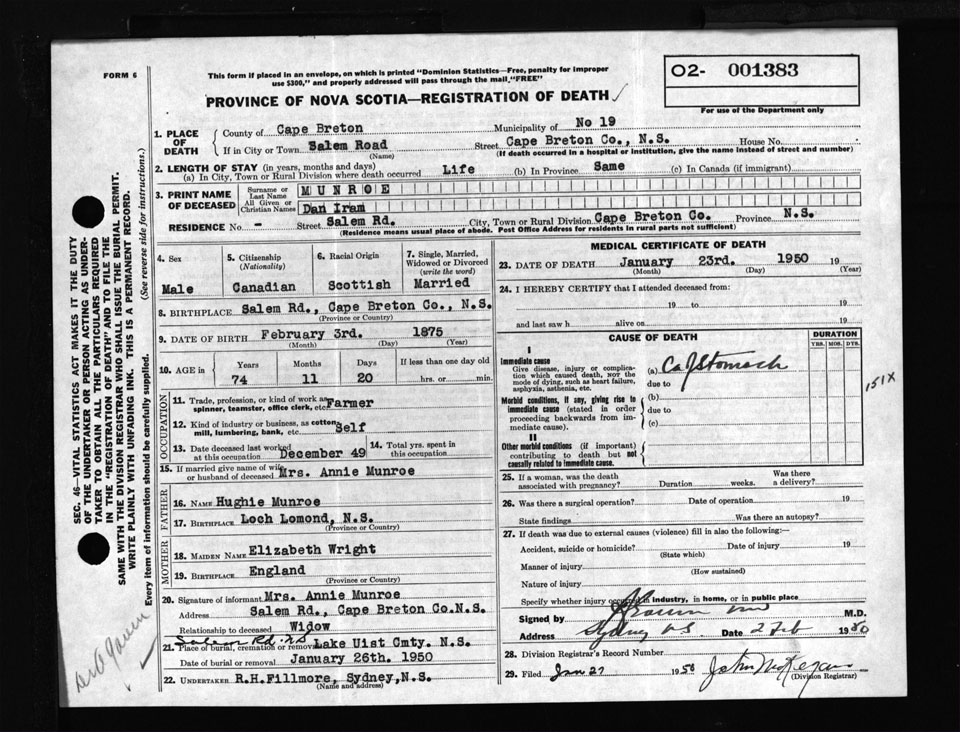 FORM 6
This form if placed in an envelope, on which is printed "Dominion Statistics—Free, penalty for improper
use $300," and properly addressed will pass through the mail "FREE"
PROVINCE OF NOVA SCOTIA—REGISTRATION OF DEATH
O2- 001383
For use of the Department only
1. PLACE OF DEATH
County of Cape Breton Municipality of No 19
If in City or Town Salem Road Street Cape Breton Co., N.S. House No.
(Name) (If death occurred in a hospital or institution, give the name instead of street and number)
2. LENGTH OF STAY (in years, months and days)
(a) In City, Town or Rural Division where death occurred Life (b) In Province Same (c) In Canada (if immigrant)
3. PRINT NAME OF DECEASED
Surname or Last Name MUNROE
All Given or Christian Names Dan Iram
RESIDENCE No. - Street Salem Rd. City, Town or Rural Division Cape Breton Co. Province N.S.
(Residence means usual place of abode. Post Office Address for residents in rural parts not sufficient)
4. Sex
Male
5. Citizenship
(Nationality)
Canadian
6. Racial Origin
Scottish
7. Single, Married, Widowed or Divorced
(write the word)
Married
8. BIRTHPLACE Salem Rd., Cape Breton Co., N.S.
(Province or Country)
9. DATE OF BIRTH February 3rd. 1875
(Month) (Day) (Year)
10. AGE in
Years Months Days If less than one day old
74 11 20 hrs. or min.
OCCUPATION
11. Trade, profession, or kind of work as
spinner, teamster, office clerk, etc. Farmer
12. Kind of industry or business, as cotton
mill, lumbering, bank, etc. Self
13. Date deceased last worked
at this occupation December 49
14. Total yrs. spent in
this occupation
15. If married give name of wife
or husband of deceased Mrs. Annie Munroe
FATHER
16. NAME Hughie Munroe
17. BIRTHPLACE Loch Lomond, N.S.
(Province or Country)
MOTHER
18. MAIDEN NAME Elizabeth Wright
19. BIRTHPLACE England
(Province or Country)
20. Signature of informant Mrs. Annie Munroe
Address Salem Rd., Cape Breton Co.N.S.
Relationship to deceased Widow
Salem Rd. N.S
21. Place of burial, cremation or removal Lake Uist Cmty. N.S.
Date of burial or removal January 26th. 1950
22. UNDERTAKER R.H.Fillmore, Sydney,N.S.
(Name and address)
MEDICAL CERTIFICATE OF DEATH
23. DATE OF DEATH January 23rd. 1950 19
(Month) (Day) (Year)
24. I HEREBY CERTIFY that I attended deceased from:
19 to 19
and last saw h alive on 19
CAUSE OF DEATH
DURATION
YRS. MOS. DYS.
I
Immediate cause
Give disease, injury or complication
which caused death, NOT the
mode of dying, such as heart failure,
asphyxia, asthenia, etc.
(a) Ca of Stomach
due to
151X
Morbid conditions, if any, giving rise to
immediate cause (stated in order
proceeding backwards from immediate
cause).
(b)
due to
(c)
II
Other morbid conditions (if important)
contributing to death but not
causally related to immediate cause.
25. If a woman, was the death
associated with pregnancy? Duration weeks. Was there
a delivery?
26. Was there a surgical operation? Date of operation 19
State findings Was there an autopsy?
27. If death was due to external causes (violence) fill in also the following:—
Accident, suicide or homicide? Date of injury 19
(State which)
Manner of injury
(How sustained)
Nature of injury
Specify whether injury occurred in industry, in home, or in public place
Signed by M.D.
Address Sydney N S Date 2 Feb 1950
28. Division Registrar's Record Number
29. Filed Jan 27 1950
(Division Registrar)
SEC. 46—VITAL STATISTICS ACT MAKES IT THE DUTY
OF THE UNDERTAKER OR PERSON ACTING AS UNDERTAKER
TO OBTAIN ALL THE PARTICULARS REQUIRED
IN THE "REGISTRATION OF DEATH" AND TO FILE THE
SAME WITH THE DIVISION REGISTRAR WHO SHALL ISSUE THE BURIAL PERMIT.
WRITE PLAINLY WITH UNFADING INK. THIS IS A PERMANENT RECORD.
Every item of information should be carefully supplied. (See reverse side for instructions.)